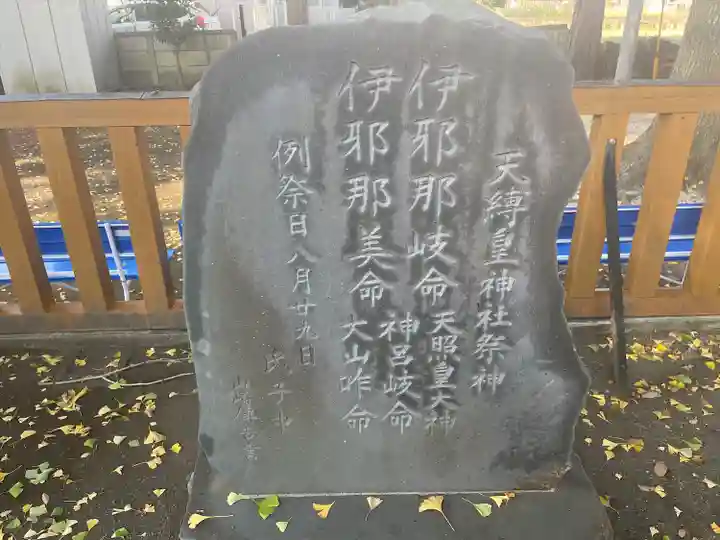 天縛皇神社祭神
伊邪那岐命 天照皇大神
神呂岐命
伊邪那美命 大山咋命
例祭日八月廿九日
氏子中